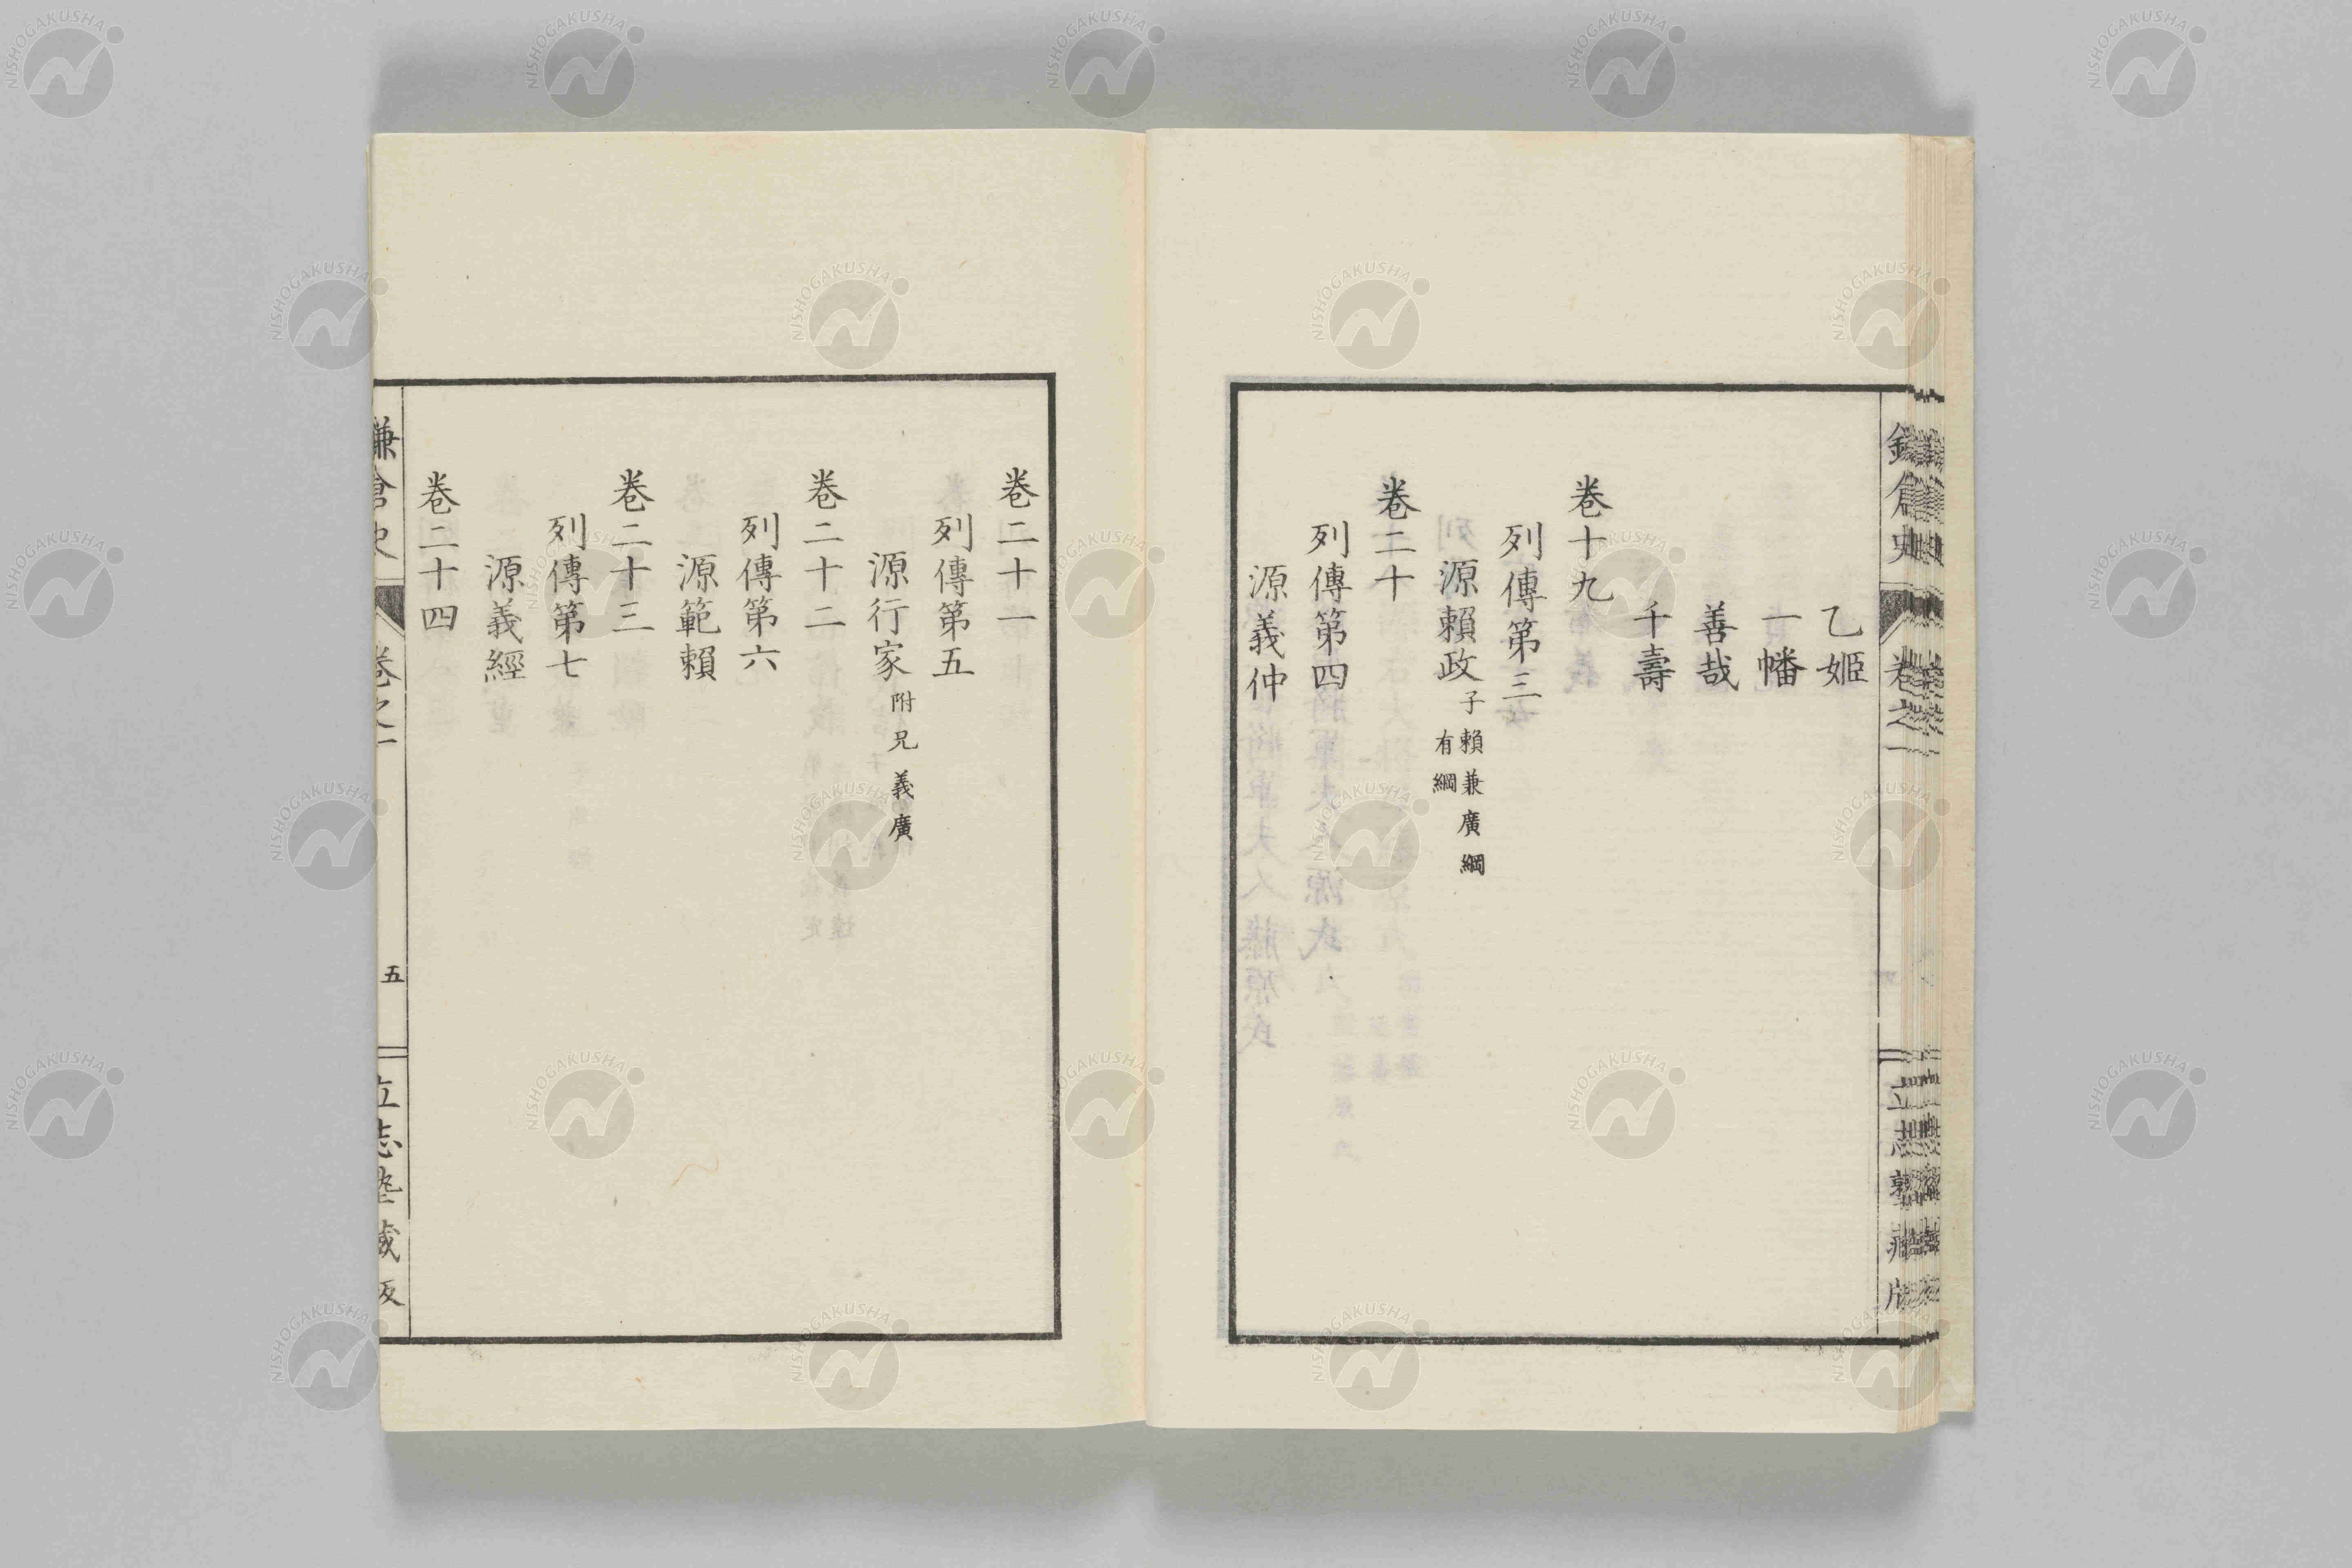 乙姬
一幡
善哉
千壽
卷十九
列傳第三
源賴政 子賴兼廣綱
有綱
卷二十
列傳第四
源義仲
卷二十一
列傳第五
源行家 附兄義廣
卷二十二
列傳第六
源範賴
卷二十三
列傳第七
源義經
卷二十四
鎌倉史 卷之一 五 立志塾藏版
NISHOGAKUSHA